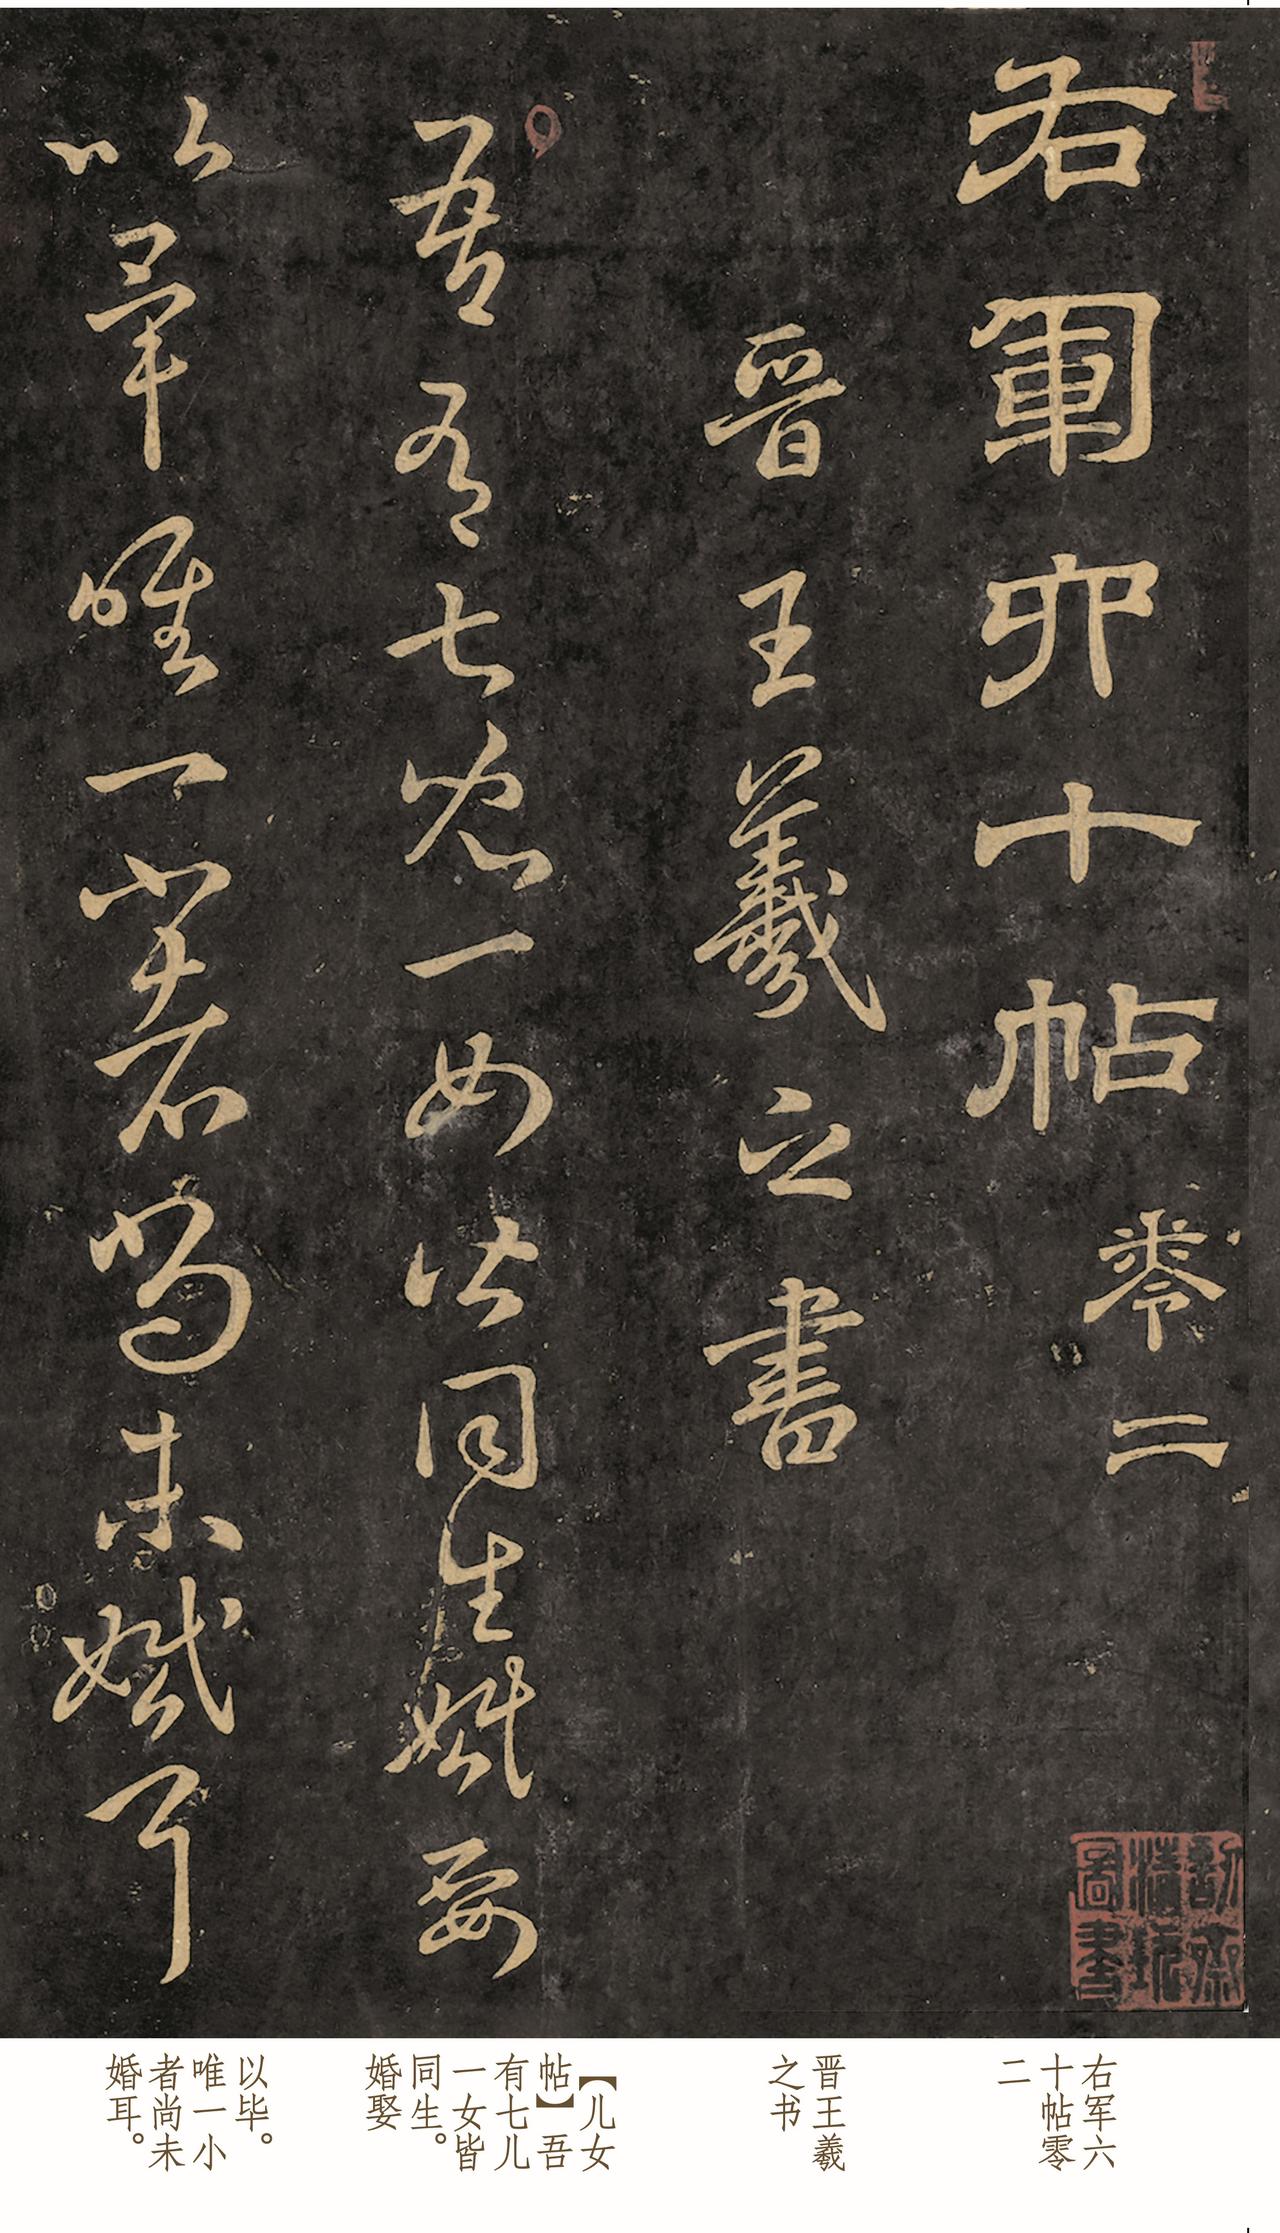 右軍六十帖
零二
晋王羲之書
吾有七兒一女皆同生婚娶
以畢唯一小者尚未婚耳
齋
清玩
圖書
右军六
十帖零
二
晋王羲
之书
【儿女
帖】吾
有七儿
一女皆
同生。
婚娶
以毕。
唯一小
者尚未
婚耳。